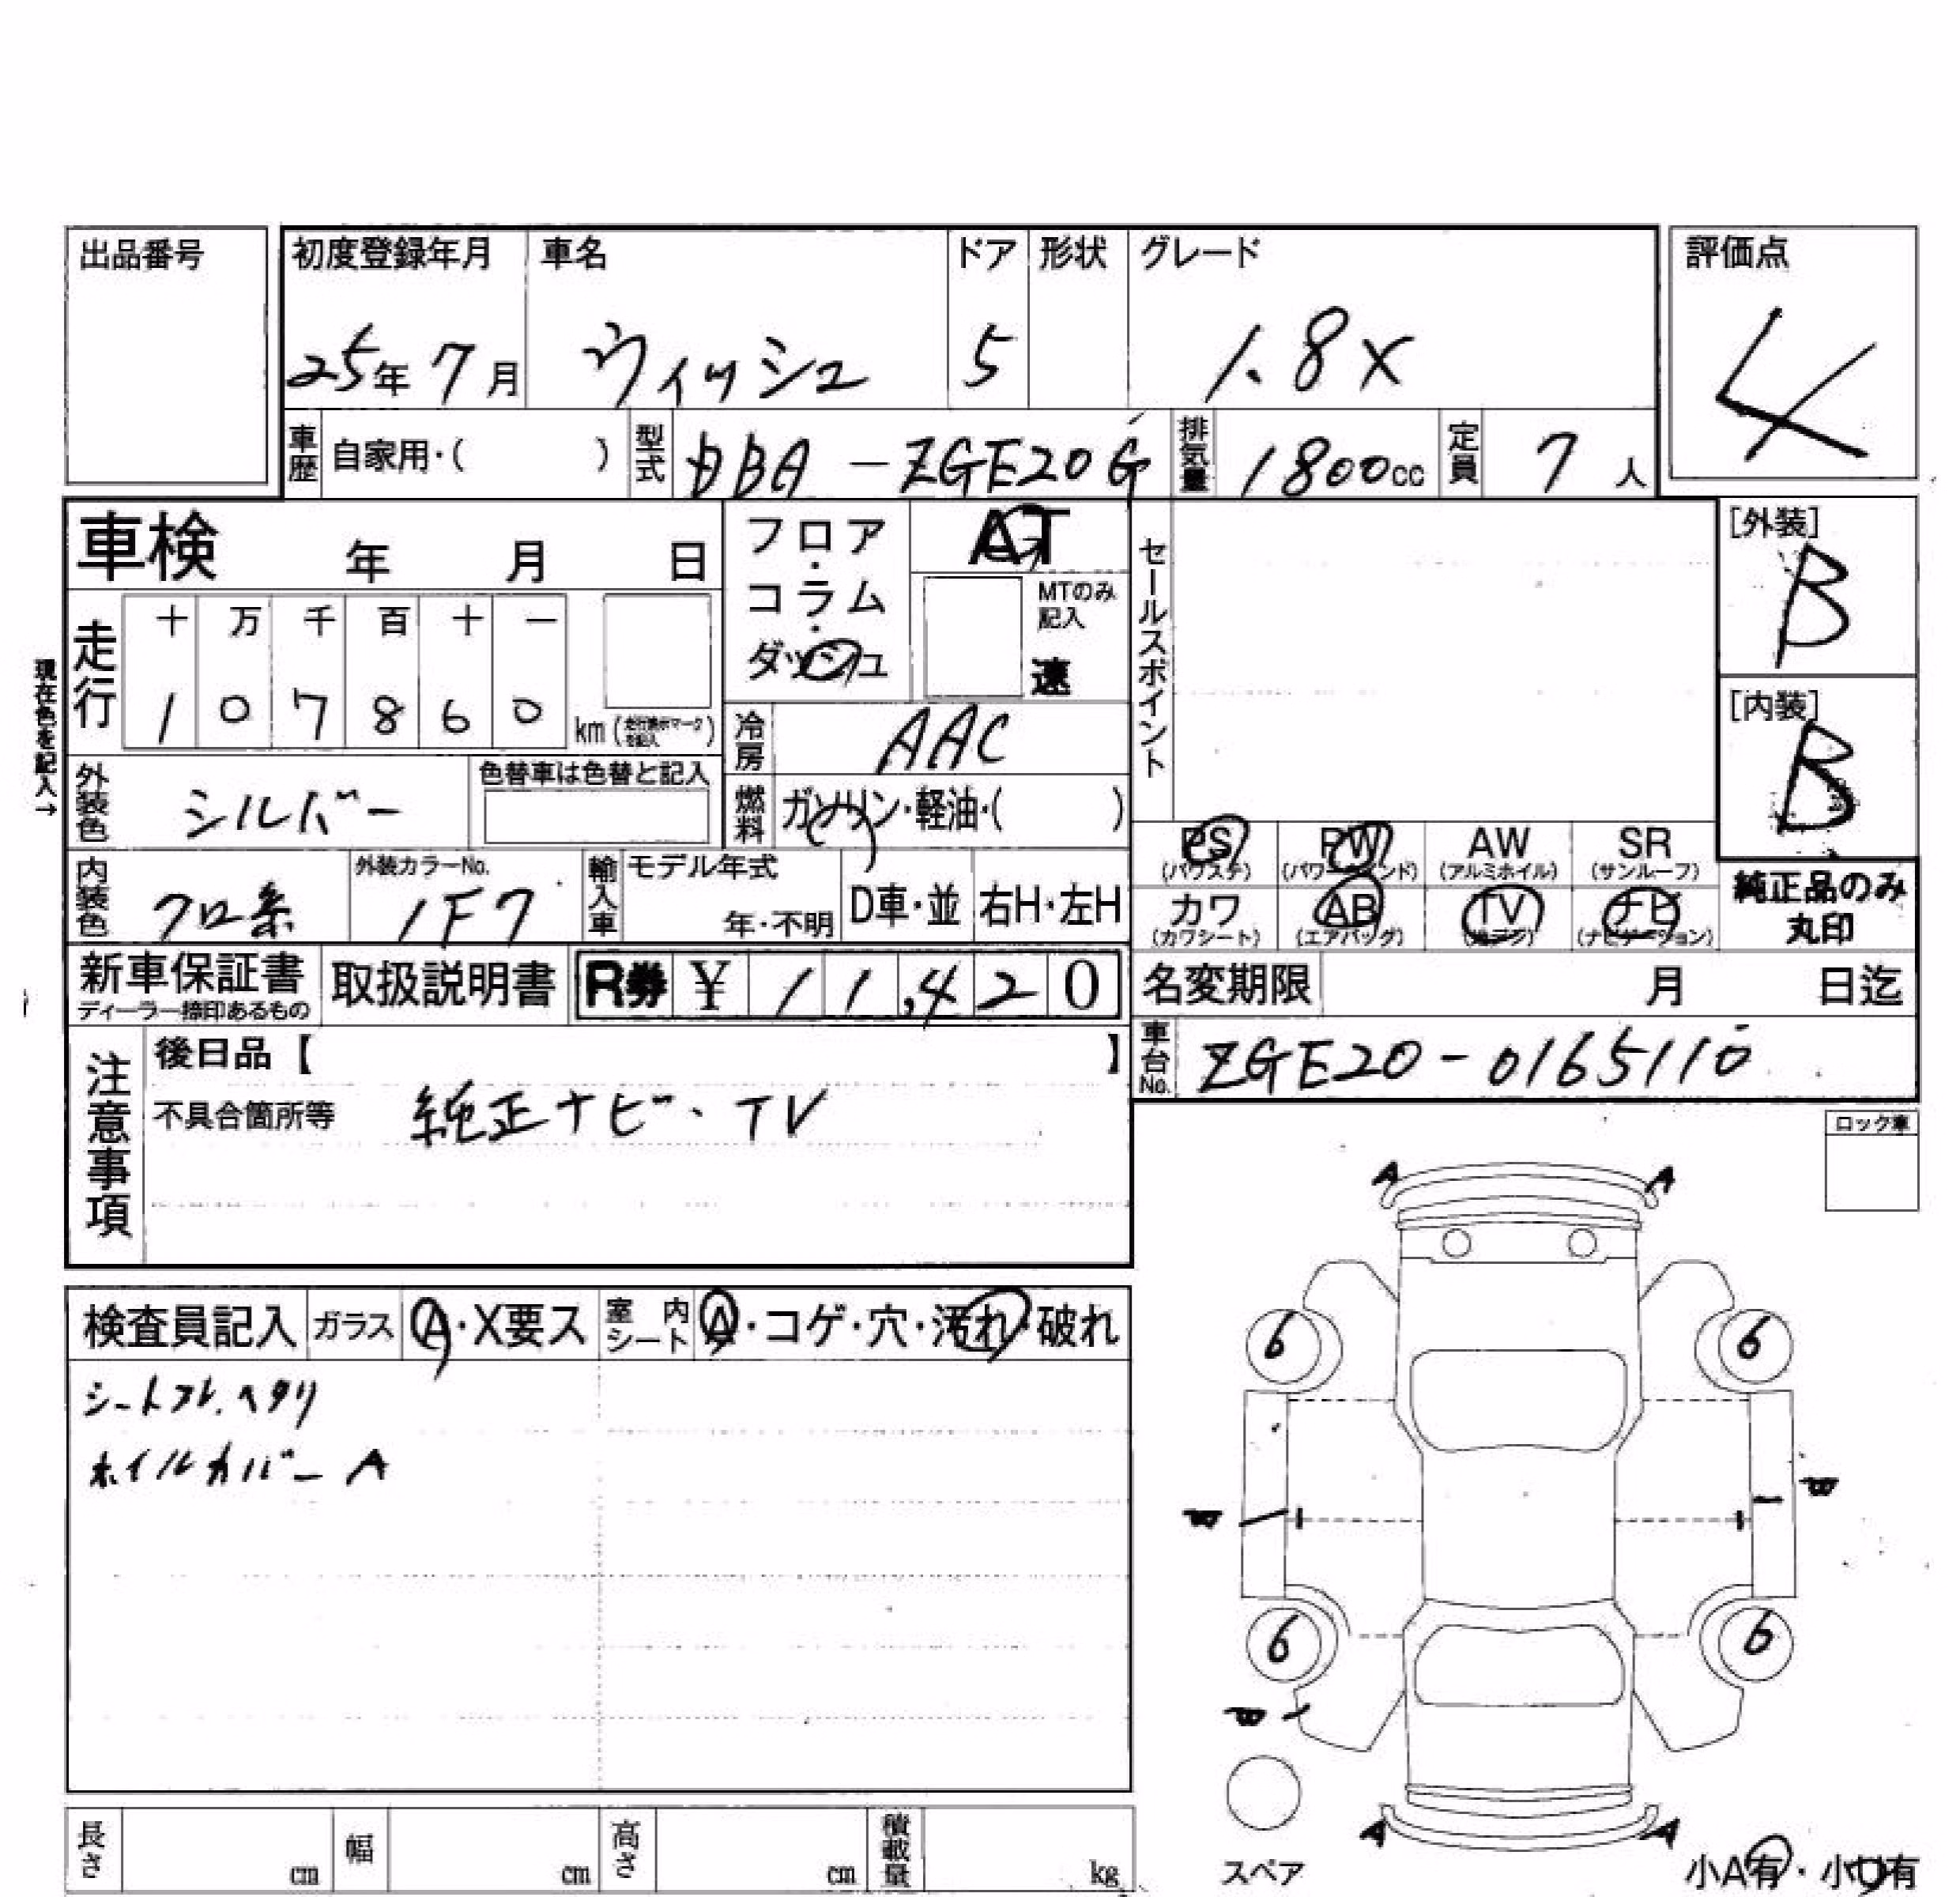 出品番号
初度登録年月 車名 ドア 形状 グレード 評価点
25年 7月 ウィッシュ 5 1.8X 4
車歴 自家用・( ) 型式 DBA-ZGE20G 排気量 1800cc 定員 7人
車検 年 月 日
フロア・コラム・ダッシュ
AT
MTのみ記入
速
セールスポイント
[外装]
B
走行 十 万 千 百 十 一
1 0 7 8 6 0 km (走行表示マークを記入)
現在色を記入→
冷房 AAC
[内装]
B
外装色 シルバー 色替車は色替と記入
燃料 ガソリン・軽油・( )
PS (パワステ) PW (パワーウィンド) AW (アルミホイル) SR (サンルーフ)
カワ (カワシート) AB (エアバッグ) TV ナビ (ナビゲーション)
純正品のみ
丸印
内装色 クロ系 外装カラーNo. 1F7 輸入車 モデル年式 年・不明 D車・並 右H・左H
新車保証書 取扱説明書 R券 ¥ 11,420
ディーラー捺印あるもの
名変期限 月 日迄
車台No. ZGE20-0165110
注意事項
後日品【 】
不具合箇所等 純正ナビ、TV
ロック車
検査員記入 ガラス A・X要ス 室内シート A・コゲ・穴・汚れ・破れ
シートスレ、ヘタリ
ホイルカバー A
A A
6 6
W W
6 6
W
A A
スペア
小A有・小U有
長さ cm 幅 cm 高さ cm 積載量 kg